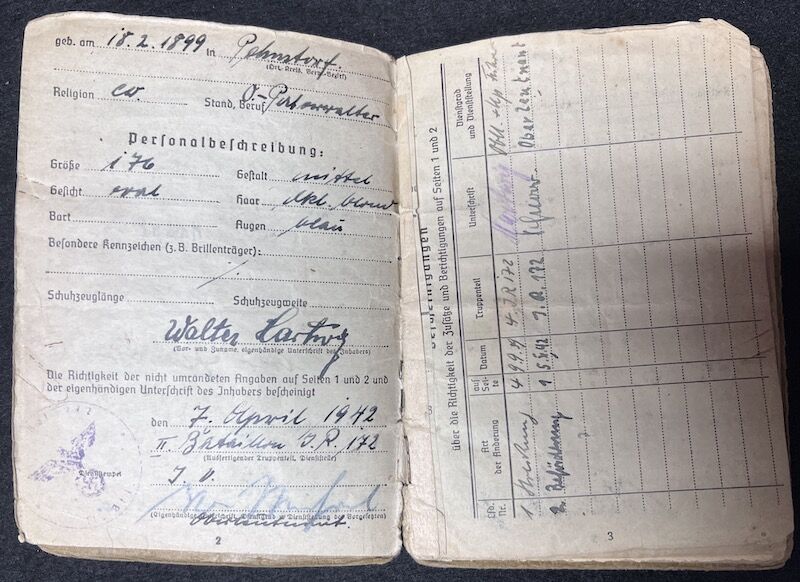 geb. am 18.2.1899 in
(Ort, Kreis, Verw.-Bezirk)
Religion ev. Stand, Beruf
Personalbeschreibung:
Größe 176 Gestalt mittel
Gesicht oval Haar dkl. blond
Bart Augen blau
Besondere Kennzeichen (z.B. Brillenträger):
Schuhzeuglänge Schuhzeugweite
Walter Hartwig
(Vor- und Zuname, eigenhändige Unterschrift des Inhabers)
Die Richtigkeit der nicht umrandeten Angaben auf Seiten 1 und 2 und
der eigenhändigen Unterschrift des Inhabers bescheinigt
den 7. April 1942
II. Bataillon J.R. 172
(Ausfertigender Truppenteil, Dienststelle)
J.V.
Dienststempel
(Eigenhändige Unterschrift, Dienstgrad u. Dienststellung des Vorgesetzten)
Oberleutnant.
2
Bescheinigungen
über die Richtigkeit der Zusätze und Berichtigungen auf Seiten 1 und 2
Lfd. Nr. Art der Änderung auf Seite Datum Truppenteil Unterschrift Dienstgrad und Dienststellung
1 4 4. J.R. 172
2. Beförderung 1 5.5.42 J.R. 172 Oberleutnant
3